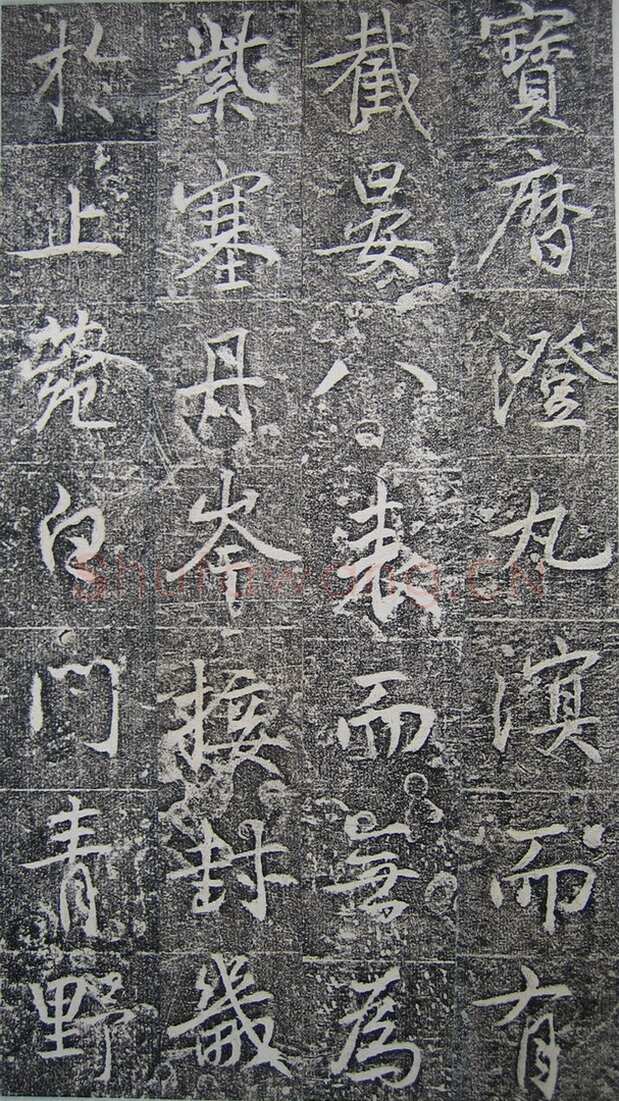 寶曆澄九溟而有
截晏八表而無為
紫塞丹岑接封畿
於上菀白門青野
Shufawang.CN